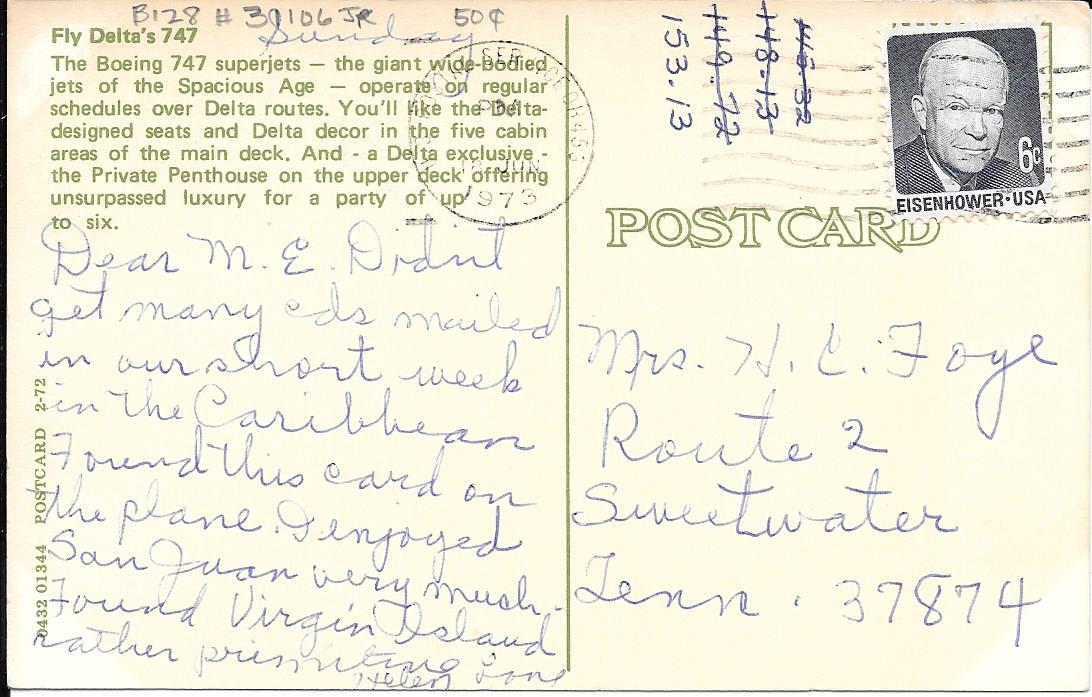 B128 # 30106 JR 50¢
Sunday
Fly Delta's 747
The Boeing 747 superjets — the giant wide-bodied
jets of the Spacious Age — operate on regular
schedules over Delta routes. You'll like the Delta-
designed seats and Delta decor in the five cabin
areas of the main deck. And - a Delta exclusive -
the Private Penthouse on the upper deck offering
unsurpassed luxury for a party of up
to six.
Dear M. E. Didn't
get many cds mailed
in our short week
in the Caribbean
Found this card on
the plane. I enjoyed
San Juan very much -
Found Virgin Island
rather primitive
Helen
0432 01344 POSTCARD 2-72
PM
JUN
1973
148.13
149.72
153.13
6c
EISENHOWER·USA
POST CARD
Mrs. H. C. Foye
Route 2
Sweetwater
Tenn. 37874